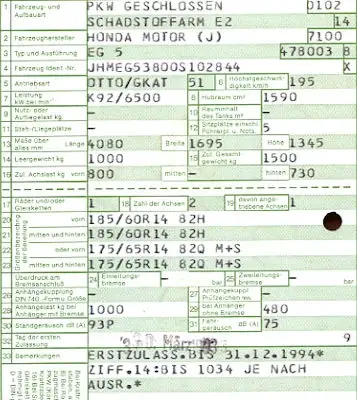 1 Fahrzeug- und Aufbauart PKW GESCHLOSSEN 0102
SCHADSTOFFARM E2 14
2 Fahrzeughersteller HONDA MOTOR (J) 7100
3 Typ und Ausführung EG 5 478003 8
4 Fahrzeug-Ident.-Nr. JHMEG53800S102844 X
5 Antriebsart OTTO/GKAT 51 6 Höchstgeschwindigkeit km/h 195
7 Leistung kW bei min⁻¹ K92/6500 8 Hubraum cm³ 1590
9 Nutz- oder Aufliegelast kg 10 Rauminhalt des Tanks m³
11 Steh-/Liegeplätze 12 Sitzplätze einschl. Führerpl. u. Nots. 5
13 Maße über alles mm Länge 4080 Breite 1695 Höhe 1345
14 Leergewicht kg 1000 15 Zul. Gesamtgewicht kg 1500
16 Zul. Achslast kg vorn 800 mitten hinten 730
17 Räder und/oder Gleisketten 1 18 Zahl der Achsen 2 19 davon angetriebene Achsen 1
20 vorn 185/60R14 82H
21 mitten und hinten 185/60R14 82H
22 oder vorn 175/65R14 82Q M+S
23 mitten und hinten 175/65R14 82Q M+S
Überdruck am Bremsanschluß 24 Einleitungsbremse bar 25 Zweileitungsbremse bar
26 Anhängekupplung DIN 740.-Form u. Größe 27 Anhängekuppl. Prüfzeichen
28 Anhängelast kg bei Anhänger mit Bremse 1000 29 bei Anhänger ohne Bremse 480
30 Standgeräusch dB (A) 93P 31 Fahrgeräusch dB (A) 75
32 Tag der ersten Zulassung 9
33 Bemerkungen ERSTZULASS.BIS 31.12.1994*
ZIFF.14:BIS 1034 JE NACH
AUSR.*